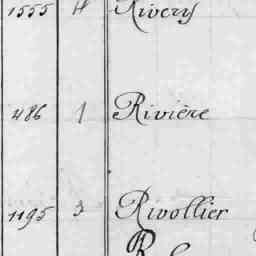 1555 4 Rivery
486 1 Rivière
1195 3 Rivollier